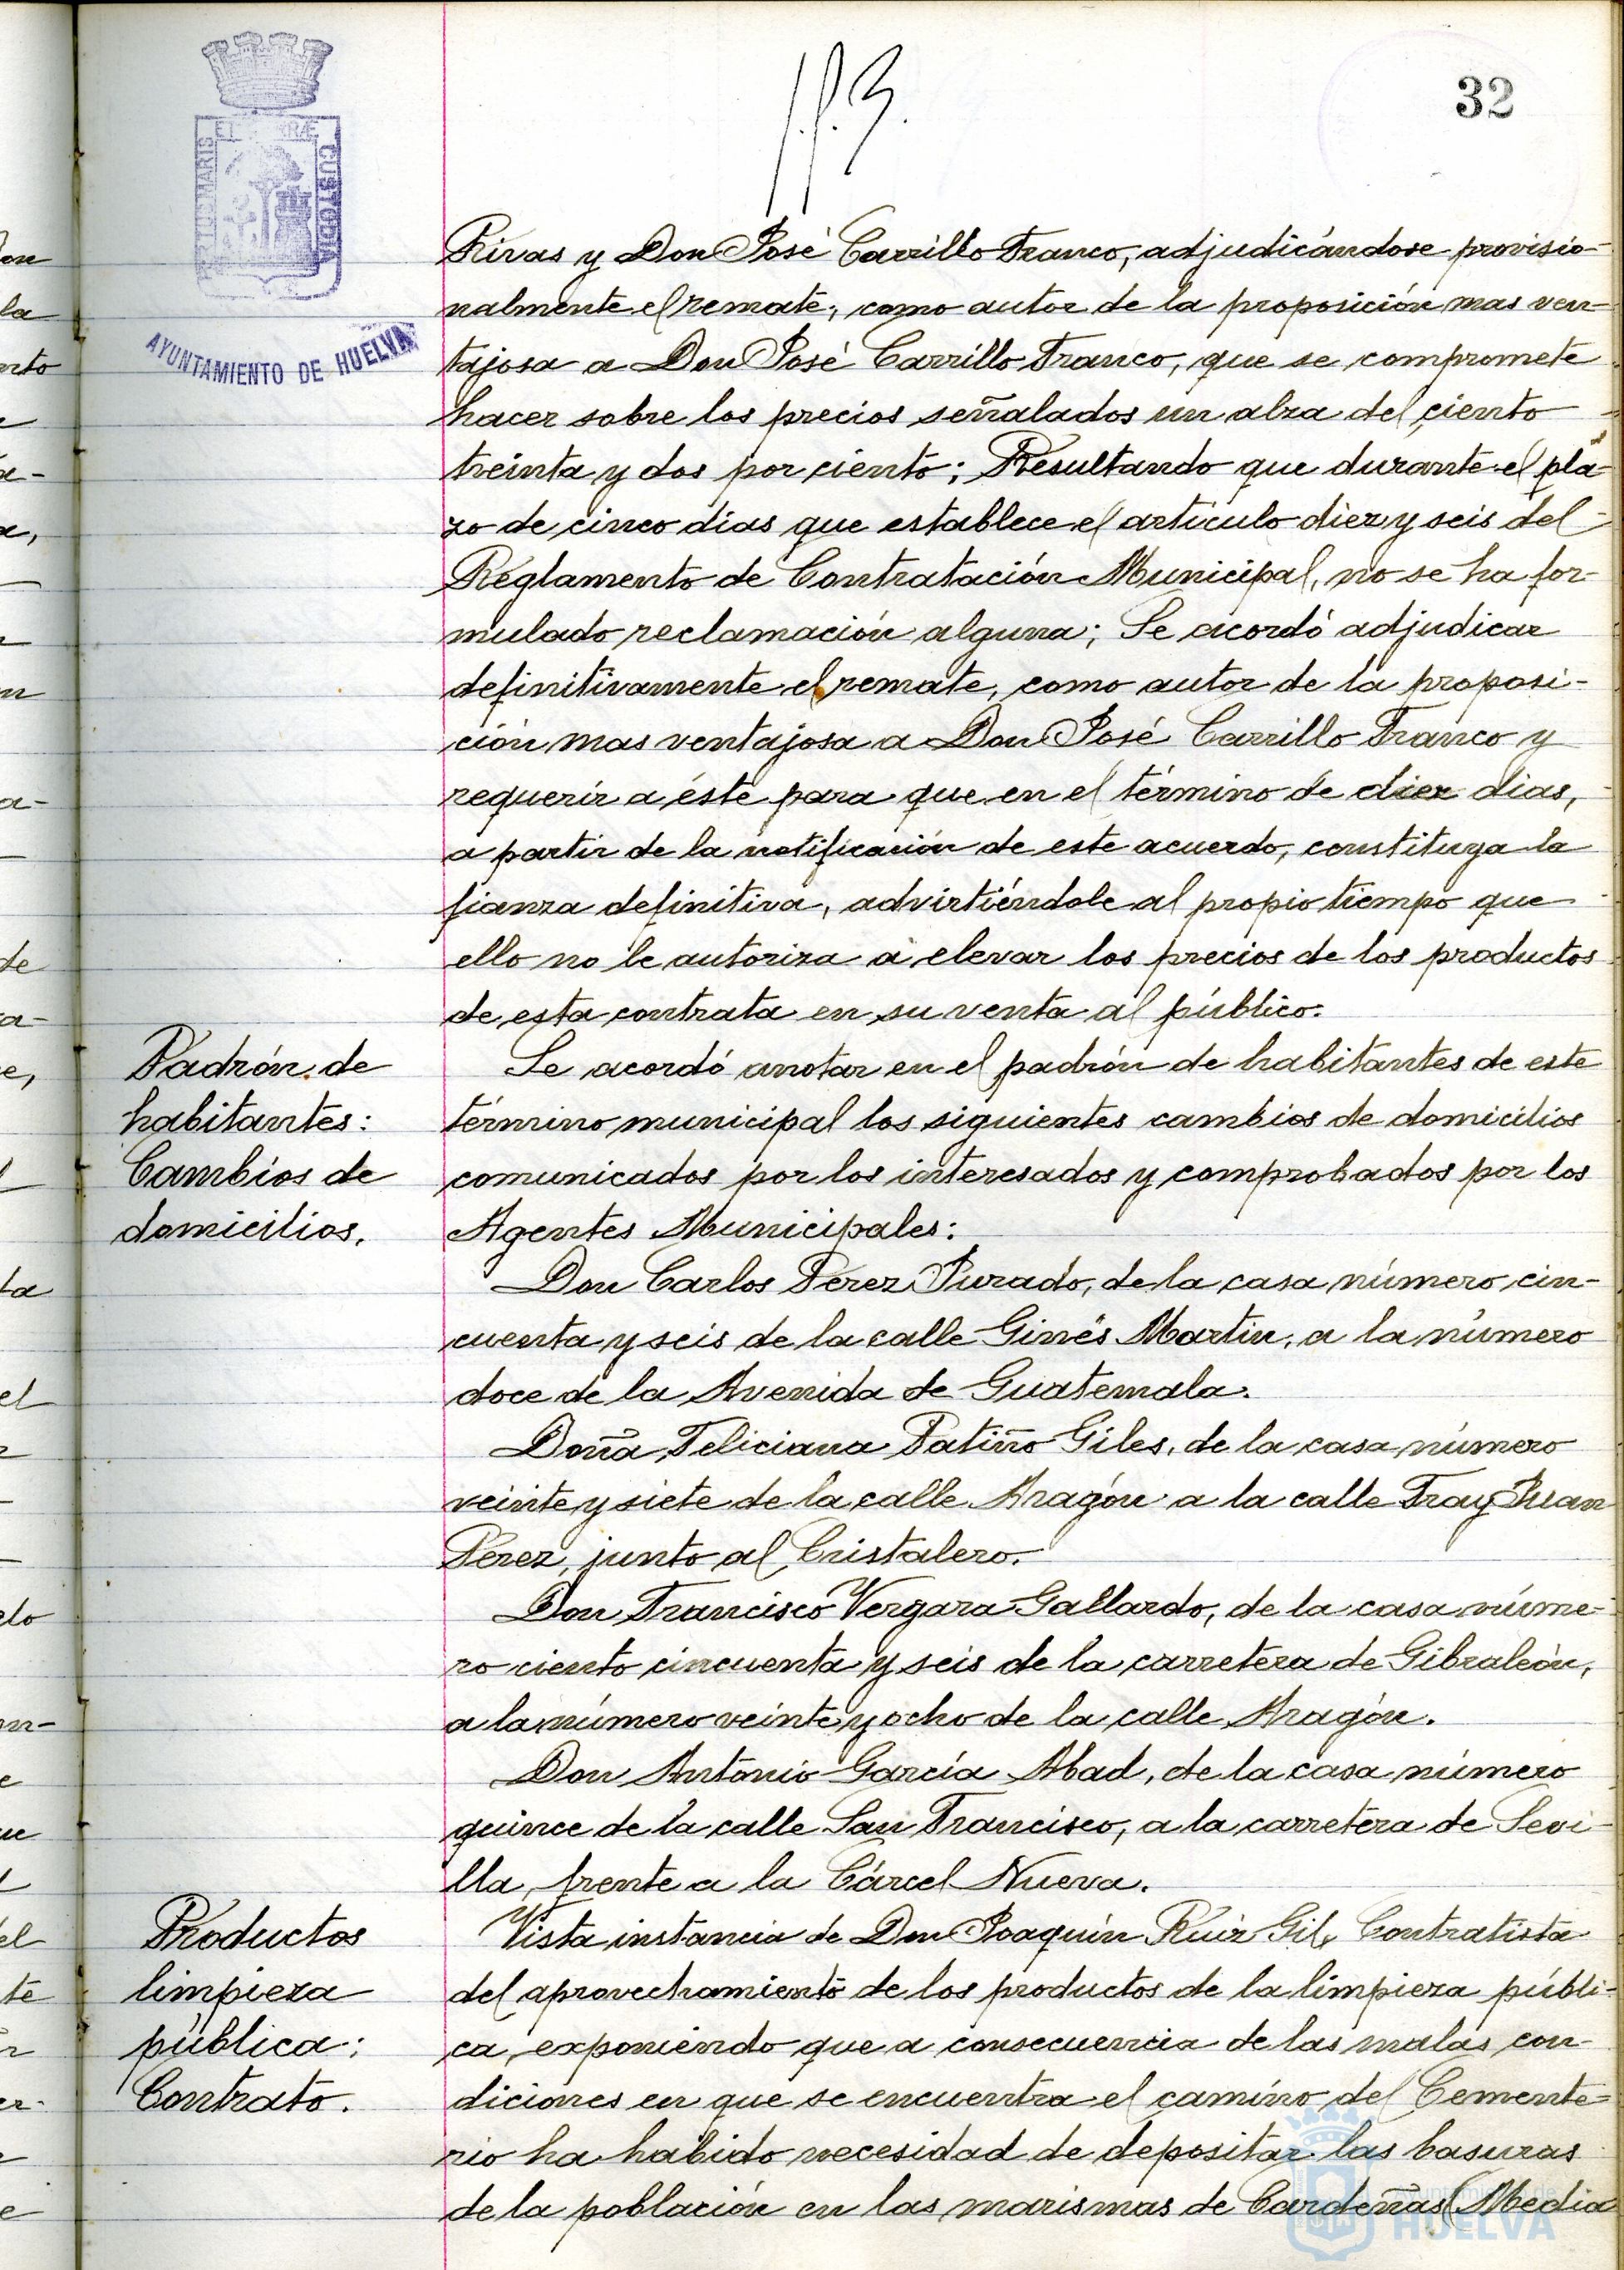 32
PORTUS MARIS ET TERRÆ CUSTODIA
AYUNTAMIENTO DE HUELVA
Rivas y Don José Carrillo Franco, adjudicándose provisio-
nalmente el remate, como autor de la proposición mas ven-
tajosa a Don José Carrillo Franco, que se compromete
hacer sobre los precios señalados un alza del ciento
treinta y dos por ciento; Resultando que durante el pla-
zo de cinco dias que establece el artículo diez y seis del
Reglamento de Contratación Municipal, no se ha for-
mulado reclamación alguna; Se acordó adjudicar
definitivamente el remate, como autor de la proposi-
ción mas ventajosa a Don José Carrillo Franco y
requerir a éste para que en el término de diez dias,
a partir de la notificación de este acuerdo, constituya la
fianza definitiva, advirtiéndole al propio tiempo que
ello no le autoriza a elevar los precios de los productos
de esta contrata en su venta al público.
Padrón de
habitantes:
Cambios de
domicilios.
Se acordó anotar en el padrón de habitantes de este
término municipal los siguientes cambios de domicilios
comunicados por los interesados y comprobados por los
Agentes Municipales:
Don Carlos Perez Jurado, de la casa número cin-
cuenta y seis de la calle Ginés Martin, a la número
doce de la Avenida de Guatemala.
Doña Feliciana Patiño Giles, de la casa número
veinte y siete de la calle Aragón a la calle Fray Juan
Perez, junto al Cristalero.
Don Francisco Vergara Gallardo, de la casa núme-
ro ciento cincuenta y seis de la carretera de Gibraleón,
a la número veinte y ocho de la calle Aragón.
Don Antonio García Abad, de la casa número
quince de la calle San Francisco, a la carretera de Sevi-
lla, frente a la Cárcel Nueva.
Productos
limpieza
pública:
Contrato.
Vista instancia de Don Joaquín Ruiz Gil, Contratista
del aprovechamiento de los productos de la limpieza públi-
ca, exponiendo que a consecuencia de las malas con-
diciones en que se encuentra el camino del Cemente-
rio ha habido necesidad de depositar las basuras
de la población en las marismas de Cardeñas (Media
Ayuntamiento de
HUELVA